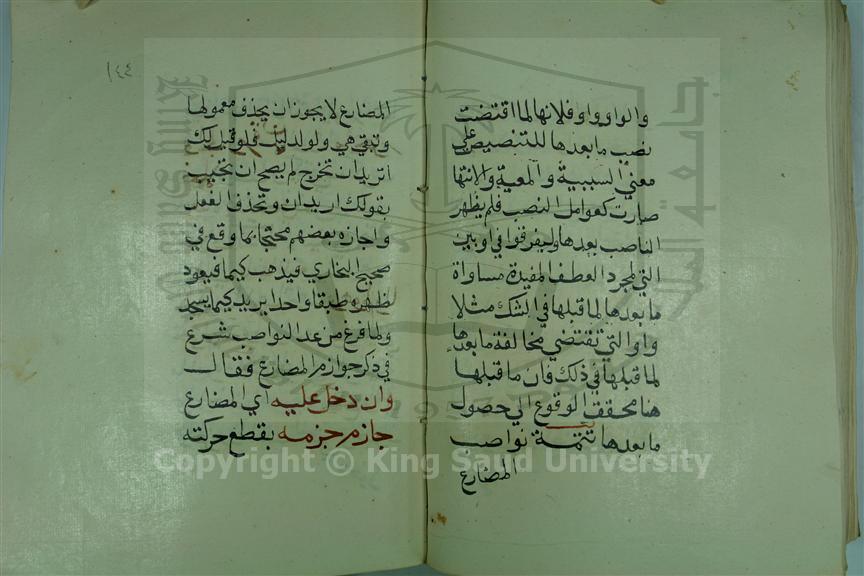 والواو واو فلانها لما اقتضت
نصب ما بعدها للتنصيص على
معنى السببية والمعية والانتها
صارت كعوامل النصب فلم يظهر
الناصب بعدها وليفرقوا في او بين
التي لمجرد العطف المفيدة مساواة
ما بعدها لما قبلها في الشك مثلا
واو التي تقتضي مخالفة ما بعدها
لما قبلها في ذلك فان ما قبلها
هنا محقق الوقوع الى حصول
ما بعدها تتمة نواصب
المضارع
١٤٤
المضارع لا يجوز ان يحذف معمولها
وتبقى هي ولو لدليل فلو قيل لك
اتريد ان تخرج لم يصح ان تجيب
بقولك اريد ان وتحذف الفعل
واجازه بعضهم محتجا بما وقع في
صحيح البخاري فيذهب كيما فيعود
ظهره طبقا واحدا يريد كيما يسجد
ولما فرغ من عد النواصب شرع
في ذكر جوازم المضارع فقال
وان دخل عليه اي المضارع
جازم جزمه بقطع حركته
Copyright © King Saud University